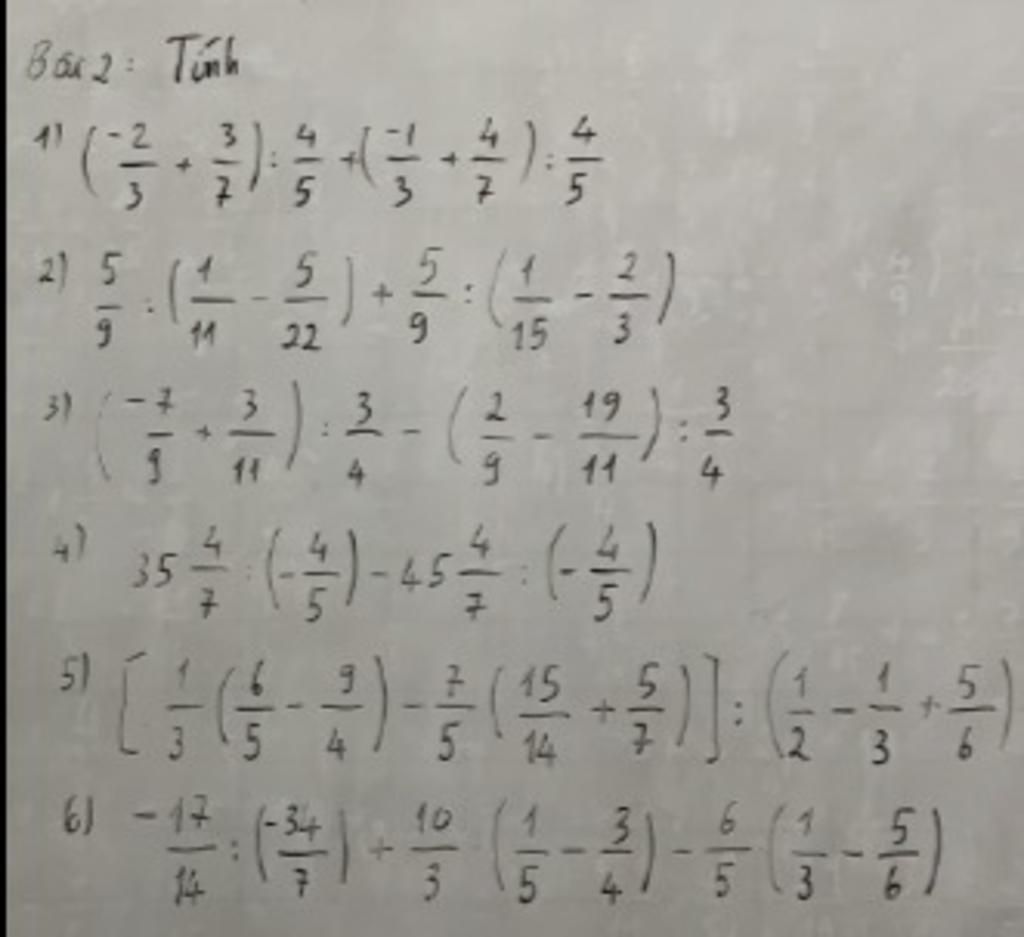 Bài 2: Tính
1) (-2/3 + 3/7) : 4/5 + (-1/3 + 4/7) : 4/5
2) 5/9 : (1/11 - 5/22) + 5/9 : (1/15 - 2/3)
3) (-7/9 + 3/11) : 3/4 - (2/9 - 19/11) : 3/4
4) 35 4/7 : (-4/5) - 45 4/7 : (-4/5)
5) [1/3 (6/5 - 9/4) - 7/5 (15/14 + 5/7)] : (1/2 - 1/3 + 5/6)
6) -17/14 : (-34/7) + 10/3 (1/5 - 3/4) - 6/5 (1/3 - 5/6)